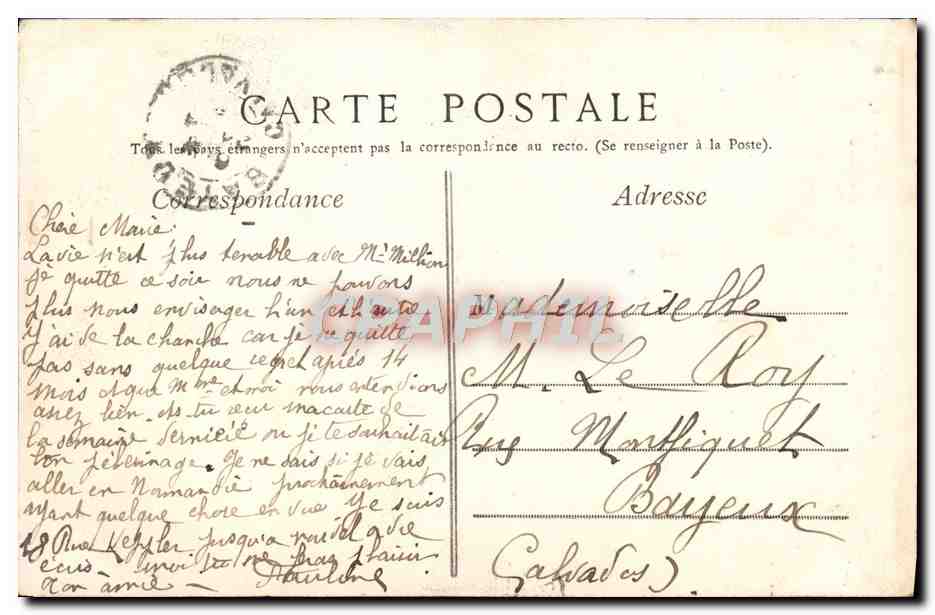 CARTE POSTALE
Tous les pays étrangers n'acceptent pas la correspondance au recto. (Se renseigner à la Poste).
Correspondance
Adresse
Chère Marie
La vie n'est plus tenable avec Mr Million
je quitte ce soir nous ne pouvons
plus nous envisager l'un et l'autre
j'ai de la chance car je ne quitte
pas sans quelque regret après 14
mois et que Mme et moi nous entendions
assez bien. As tu reçu ma carte de
la semaine dernière ou je te souhaitais
bon pèlerinage. Je ne sais si je vais
aller en Normandie prochainement
ayant quelque chose en vue Je suis
18 Rue jusqu'a
écris moi tu me feras plaisir
Ton amie — Pauline
Mademoiselle
M. Le Roy
Rue Montfiquet
Bayeux
Calvados)
CPAPHIL